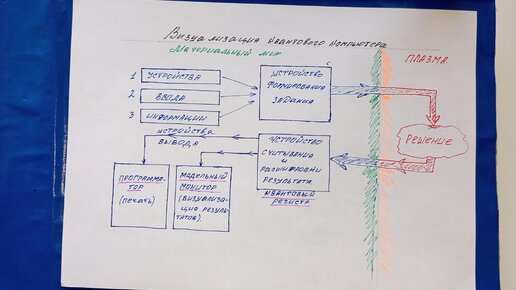 Визуализация квантового компьютера
Материальный мир
ПЛАЗМА
1 УСТРОЙСТВА
2 ВВОДА
3 ИНФОРМАЦИИ
УСТРОЙСТВО
ФОРМИРОВАНИЯ
ЗАДАНИЯ
РЕШЕНИЕ
УСТРОЙСТВА
ВЫВОДА
УСТРОЙСТВО
СЧИТЫВАНИЯ
И
РАСШИФРОВКИ
РЕЗУЛЬТАТА
КВАНТОВЫЙ
РЕГИСТР
ПРОГРАММА-
ТОР
(ПЕЧАТЬ)
МОДЕЛЬНЫЙ
МОНИТОР
(ВИЗУАЛИЗА-
ЦИЯ РЕЗУЛЬ-
ТАТОВ)